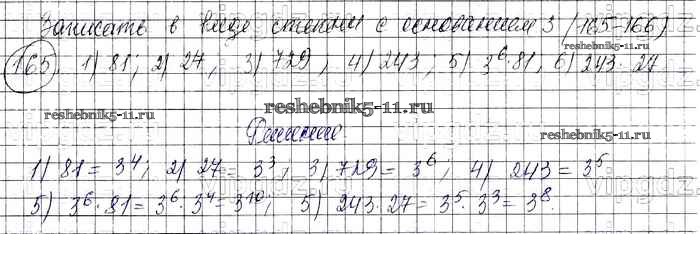 Записать в виде степени с основанием 3 (165-166)
reshebnik5-11.ru
165. 1) 81; 2) 27, 3) 729, 4) 243; 5) 3⁶·81, 6) 243·27
reshebnik5-11.ru
reshebnik5-11.ru
Решение
1) 81 = 3⁴; 2) 27 = 3³, 3) 729 = 3⁶; 4) 243 = 3⁵
5) 3⁶·81 = 3⁶·3⁴ = 3¹⁰; 5) 243·27 = 3⁵·3³ = 3⁸.